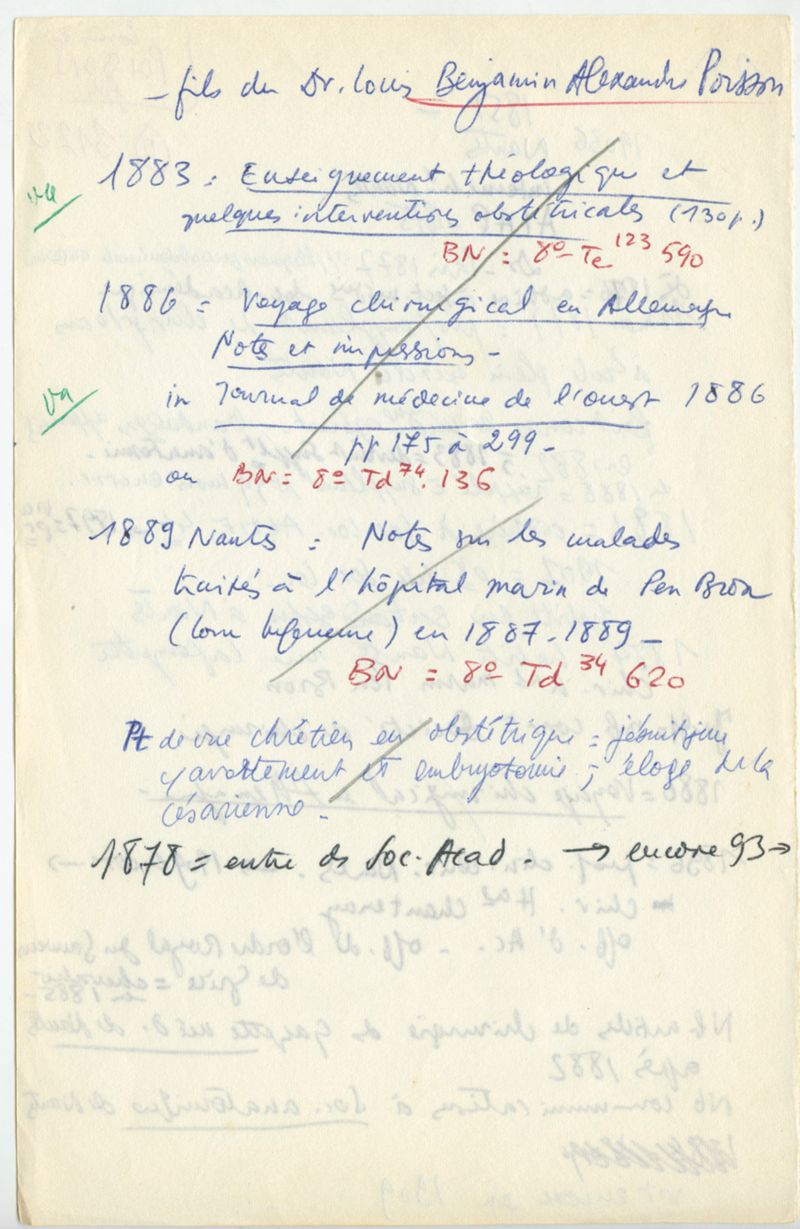 – fils du Dr. Louis Benjamin Alexandre Poisson
1883 = Enseignement théologique et
vu
quelques interventions obstétricales (130 p.)
BN = 8º Te 123 590
1886 = Voyage chirurgical en Allemagne
Notes et impressions –
vu
in Journal de médecine de l'ouest 1886
pp 175 à 299 –
ou BN = 8º Td 74. 136
1889 Nantes = Notes sur les malades
traités à l'hôpital marin de Pen Bron
(Loire Inférieure) en 1887-1889 –
BN = 8º Td 34 620
Pt de vue chrétien en obstétrique =
avortement et embryotomie ; éloge de la
césarienne –
1878 = entre ds Soc. Acad. → encore 93 →